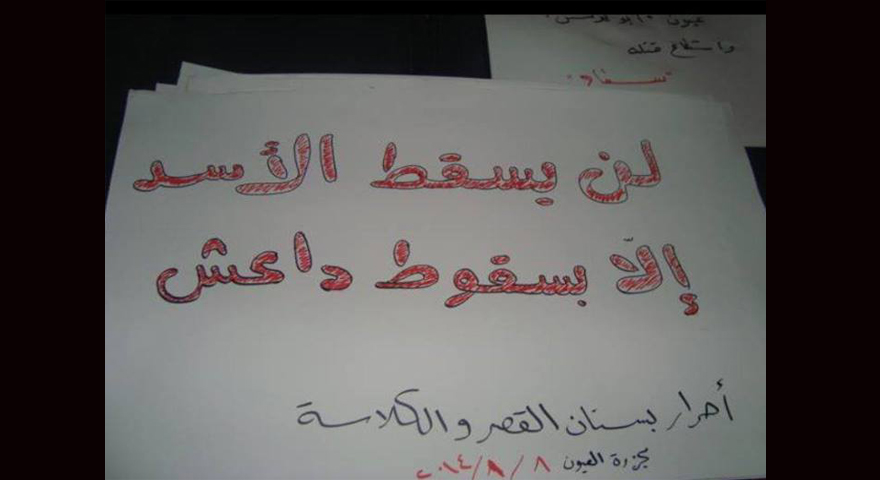 واستطاع قتله
لن يسقط الأسد
إلّا بسقوط داعش
أحرار بستان القصر والكلاسة
مجزرة العيون ٨/٨/٢٠١٤